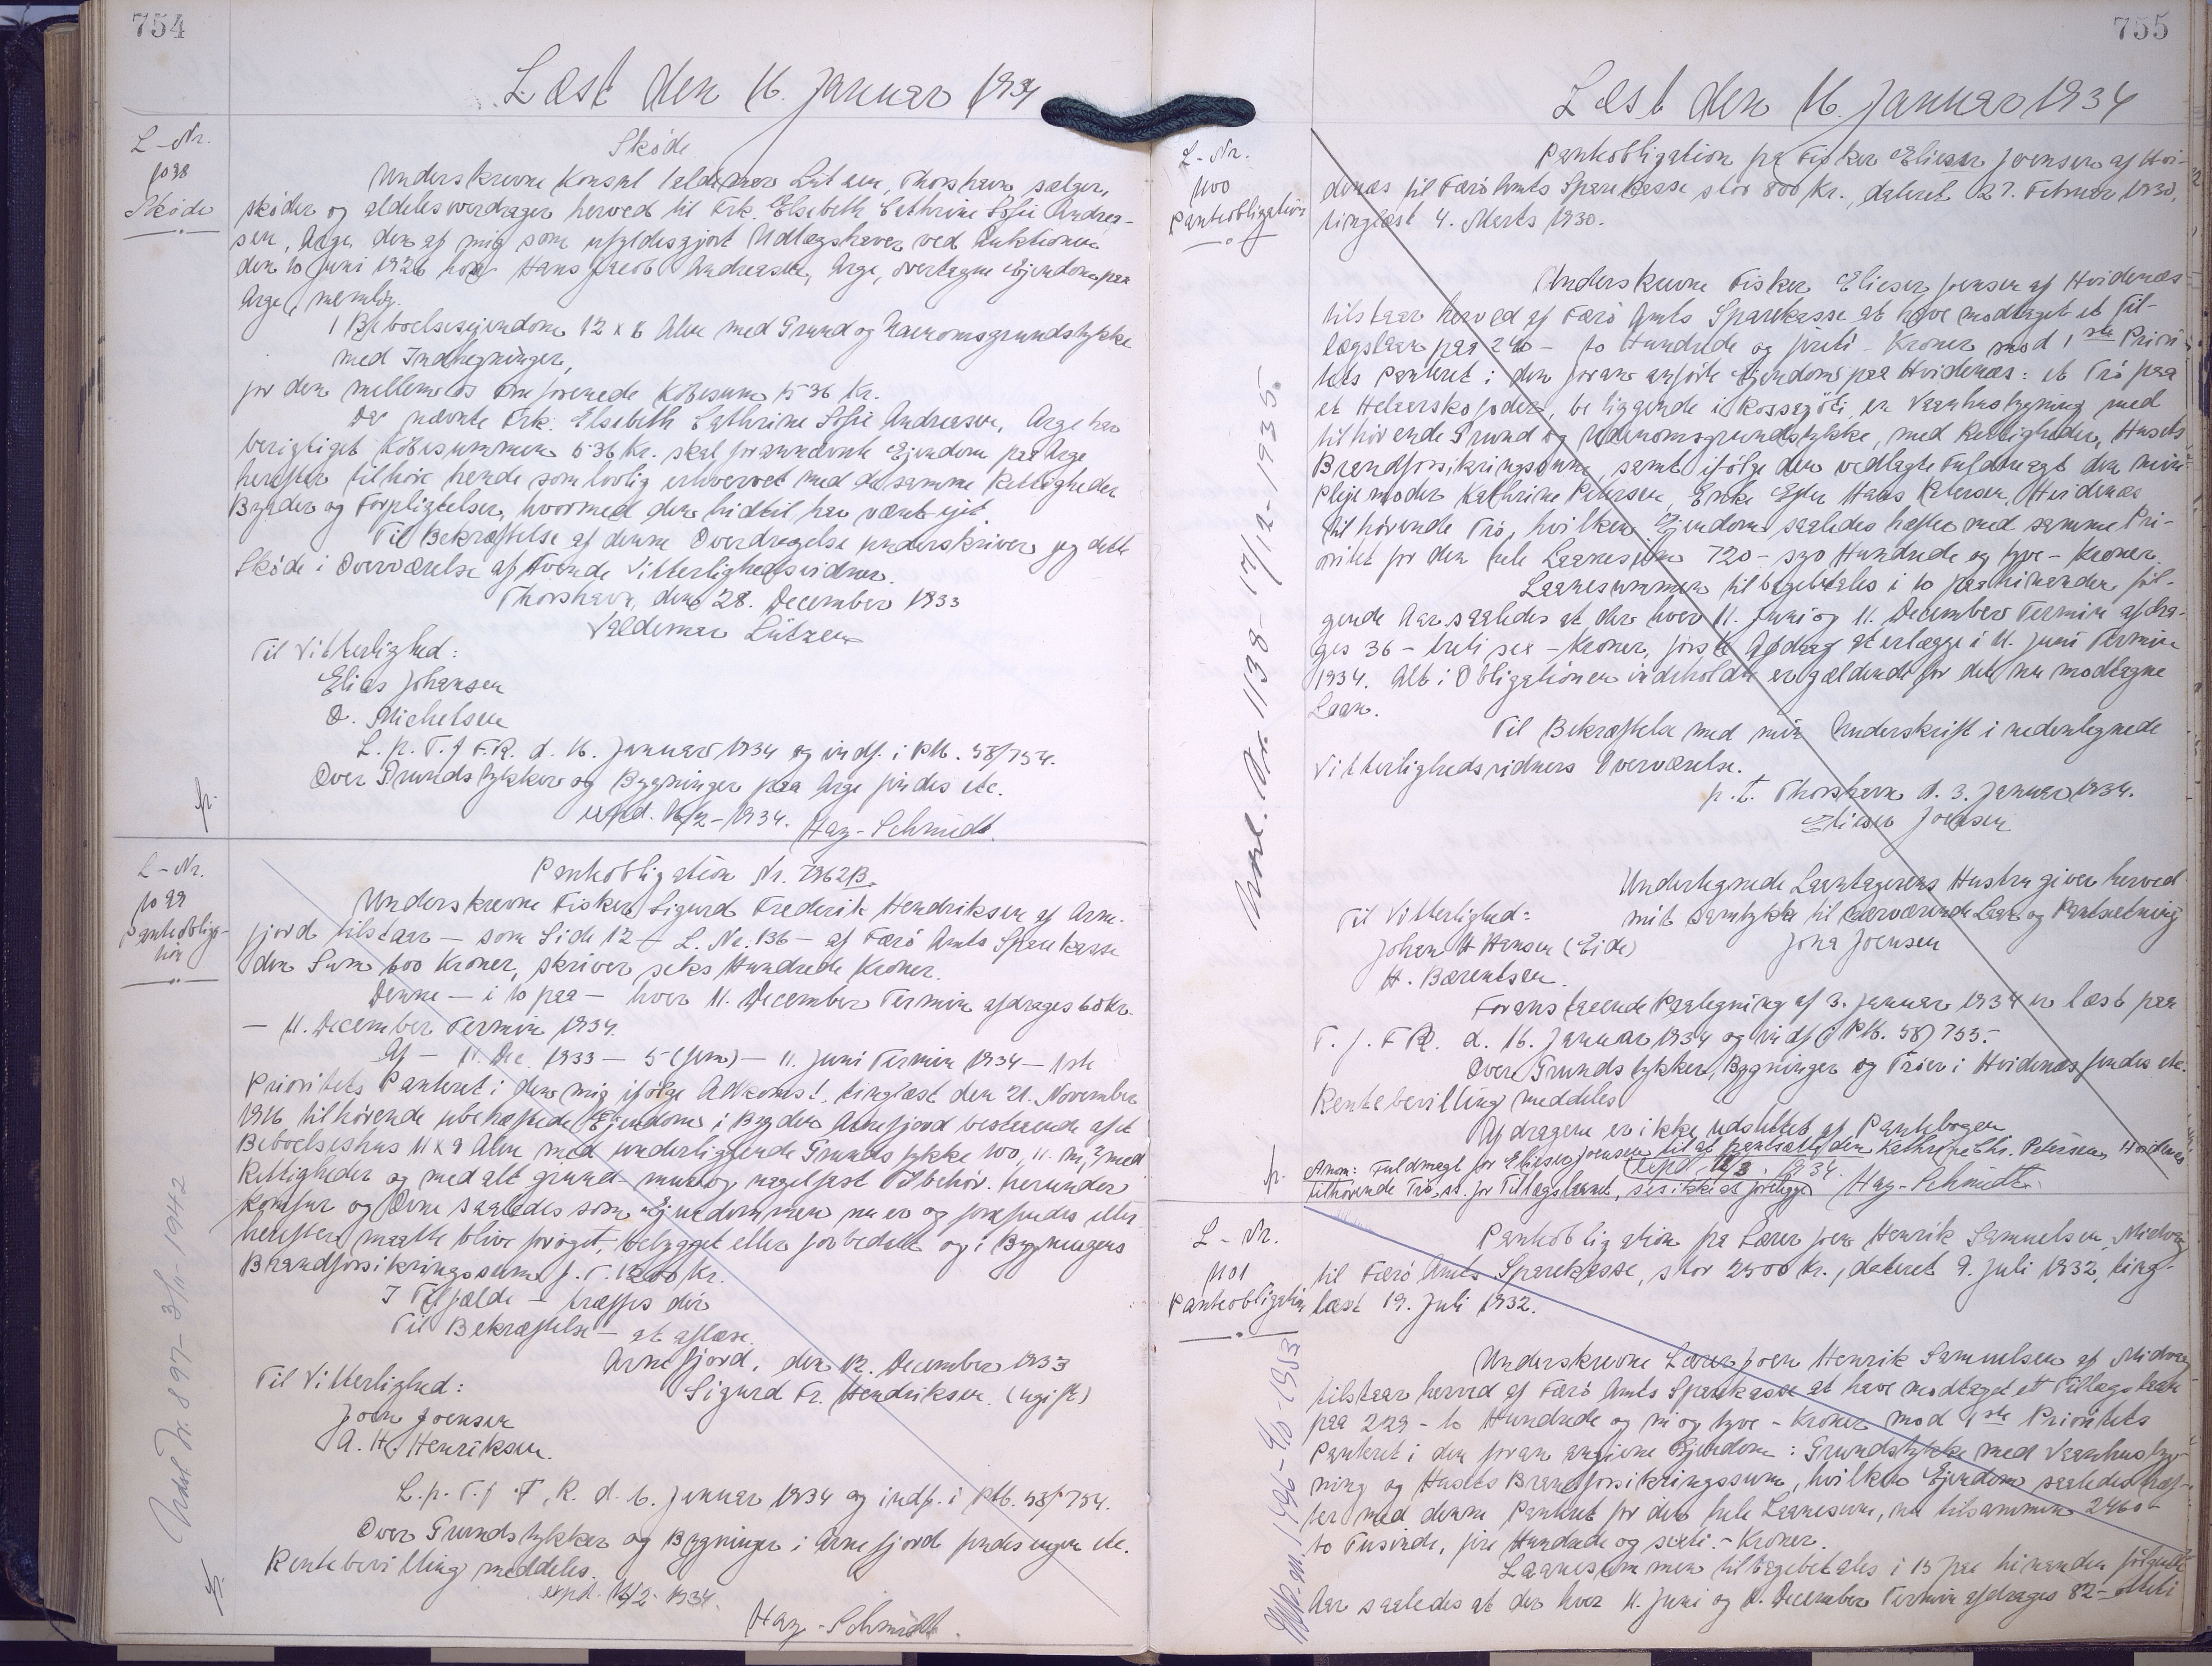 754
Læst den 16. Januar 1934
L-Nr.
1098
Skøde
Skøde
Underskrevne Konsul Valdemar Lützen, Thorshavn, sælger,
skøder og aldeles overdrager herved til Frk. Elsebeth Cathrine Sofie Andrea-
sen, Arge, den af mig som ufyldesgjort Udlægshaver ved Auktionen
den 10 Juni 1926 hos Hans Jacob Andreasen, Arge, overtagne Ejendom paa
Arge, nemlig:
1 Beboelsesejendom 12 x 8 Alen med Grund og Udenomsgrundstykke
med Indhegninger,
for den mellem os omforenede Købesum 1536 Kr.
Da nævnte Frk. Elsebeth Cathrine Sofie Andreasen, Arge har
berigtiget Købesummen 1536 Kr. skal forannævnte Ejendom paa Arge
herefter tilhøre hende som lovlig erhvervet med de samme Rettigheder
Byrder og Forpligtelser, hvormed den hidtil har været ejet.
Til Bekræftelse af denne Overdragelse underskriver jeg dette
Skøde i Overværelse af tvende Vitterlighedsvidner.
Thorshavn, den 28. December 1933
Valdemar Lützen
Til Vitterlighed:
Elias Johansen
O. Michelsen
L. p. T. f F.R. d. 16. Januar 1934 og indf. i Ptb. 58/754.
Over Grundstykker og Bygninger paa Arge findes etc.
exped. 16/2-1934. Hay-Schmidt.
L-Nr.
1099
Pantobliga-
tion
Pantobligation Nr. 7962B.
Underskrevne Fisker Sigurd Frederik Hendriksen af Arne-
fjord tilstaar — som Side 12 — L. Nr. 136 — af Færø Amts Sparekasse
den Sum 600 Kroner, skriver seks Hundrede Kroner.
Denne — i 10 paa — hver 11. December Termin afdrages 60 Kr.
— 11. December Termin 1934.
Af — 11. Dec. 1933 — 5 (fem) — 11. Juni Termin 1934 — 1ste
Prioritets Panteret i den mig ifølge Adkomst, tinglæst den 21. November
1916 tilhørende ubehæftede Ejendom i Bygden Arnefjord bestaaende af et
Beboelseshus 11 x 9 Alen med underliggende Grundstykke 100,11 m² med
Rettigheder og med alt grund- mur og nagelfast Tilbehør. herunder
Komfur og Ovne saaledes som Ejendommen nu er og forefindes eller
herefter maatte blive forøget, bebygget eller forbedret og i Bygningens
Brandforsikringssum p. T. 1200 Kr.
I Tilfælde — træffes dér
Til Bekræftelse — at aflæse.
Arnefjord, den 12. December 1933
Sigurd Fr. Hendriksen. (ugift)
Til Vitterlighed:
Joen Joensen
A. H. Henriksen.
L. p. T. f F. R. d. 16. Januar 1934 og indf. i Ptb. 58/754.
Over Grundstykker og Bygninger i Arnefjord findes ingen etc.
Rentebevilling meddeles.
expd. 16/2 1934.
Hay-Schmidt.
Udsl. Nr. 897 - 3/11-1942
755
Læst den 16. Januar 1934
L-Nr.
1100
Pantobligation
Pantobligation fra Fisker Elieser Joensen af Hvi-
denæs til Færø Amts Sparekasse stor 800 Kr., dateret 27. Februar 1930,
tinglæst 4. Marts 1930.
Underskrevne Fisker Elieser Joensen af Hvidenæs
tilstaar herved af Færø Amts Sparekasse at have modtaget et Til-
lægslaan paa 240 — to Hundrede og firti — Kroner mod 1ste Priori-
tets Panteret i den foran anførte Ejendom paa Hvidenæs: et Trø paa
et Helaarskofoder, beliggende i en Vaanhusbygning med
tilhørende Grund og Udenomsgrundstykke, med Rettigheder, Husets
Brandforsikringssum, samt ifølge den vedlagte Fuldmagt den min
Plejemoder Kathrine Petersen, Enke efter Hans Petersen, Hvidenæs
tilhørende Trø, hvilken Ejendom saaledes hæfter med samme Pri-
oritet for den hele Laanesum 720 — syv Hundrede og tyve — Kroner.
Laanesummen tilbagebetales i 10 paa hinanden føl-
gende Aar saaledes at der hver 11. Juni og 11. December Termin afdra-
ges 36 — treti sex — Kroner, første Afdrag at erlægge i 11. Juni Termin
1934. Alt i Obligationen indeholdt er gældende for det nu modtagne
Laan.
Til Bekræftelse med min Underskrift i nedentegnede
Vitterlighedsvidners Overværelse.
p. t. Thorshavn d. 3. Januar 1934.
Elieser Joensen
Undertegnede Laantagerens Hustru giver herved
mit Samtykke til nærværende Laan og Pantsætning
Jona Joensen
Til Vitterlighed:
Johan H Hansen (Eide)
H. Bærentsen.
Foranstaaende Paategning af 3. Januar 1934 er læst paa
T. f. F R. d. 16. Januar 1934 og indf i Ptb. 58/755.
Over Grundstykker, Bygninger og Trøer i Hvidenæs findes etc.
Rentebevilling meddeles
Afdragene er ikke udslettet af Pantebogen
Anm: Fuldmagt for Elieser Joensen til at pantsætte den Kathrine Chr. Petersen, Hvidenæs
tilhørende Trø, st. for Tillægslaanet, ses ikke at foreligge
Expd. 12/3. 1934.
Hay-Schmidt.
Udsl. Nr. 1138 - 17/12-1935
L-Nr.
1101
Pantobligation
Pantobligation fra Lærer Joen Henrik Samuelsen, Midvaag
til Færø Amts Sparekasse, stor 2500 Kr., dateret 9. Juli 1932, ting-
læst 19. Juli 1932.
Underskrevne Lærer Joen Henrik Samuelsen af Midvaag
tilstaar herved af Færø Amts Sparekasse at have modtaget et Tillægslaan
paa 229 — to Hundrede og ni og tyve — Kroner mod 1ste Prioritets
Panteret i den foran angivne Ejendom: Grundstykke med Vaanhusbyg-
ning og Husets Brandforsikringssum, hvilken Ejendom saaledes hæf-
ter med denne Panteret for den hele Laanesum, nu tilsammen 2460 —
to Tusinde, fire Hundrede og sexti. — Kroner.
Laanesummen tilbagebetales i 15 paa hinanden følgende
Aar saaledes at der hver 11. Juni og 11. December Termin afdrages 82 — otteti